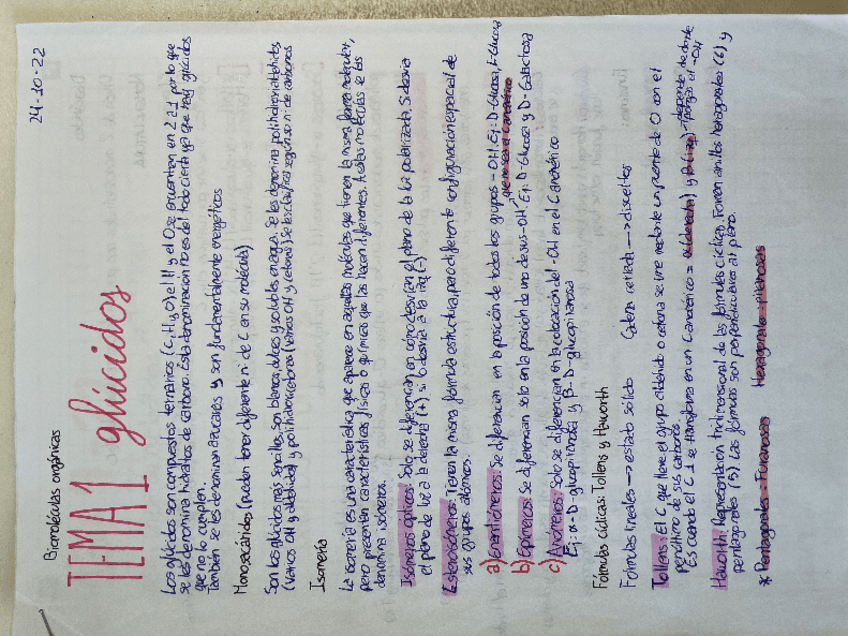 24-10-22
Biomoléculas orgánicas
TEMA 1 glúcidos
Los glúcidos son compuestos ternarios (C, H y O) el H y el O se encuentran en 2 a 1 por lo que
se les denomina hidratos de carbono. Esta denominación no es del todo cierta ya que hay glúcidos
que no lo cumplen.
También se les denominan azúcares y son fundamentalmente energéticos
Monosacáridos (pueden tener diferente nº de C en su molécula)
Son los glúcidos más sencillos, son blancos, dulces y solubles en agua. Se les denomina polihidroxialdehídos
(varios OH y aldehído) y polihidroxicetonas (varios OH y cetona) Se les clasifica según su nº de carbonos
Isomería
La isomería es una característica que aparece en aquellas moléculas que tienen la misma fórmula molecular,
pero presentan características físicas o químicas que las hacen diferentes. A estas moléculas se les
denomina isómeros.
Isómeros ópticos: Solo se diferencian en cómo desvían el plano de la luz polarizada. Si desvía
el plano de luz a la derecha (+) si lo desvía a la izq (-)
Estereoisómeros: Tienen la misma fórmula estructura, pero diferente configuración espacial de
sus grupos atómicos.
a) Enantiómeros: Se diferencian en la posición de todos los grupos -OH. Ej: D-Glucosa, L-Glucosa
que no sea el C anomérico
b) Epímeros: Se diferencian solo en la posición de uno de sus -OH, Ej: D-Glucosa y D-Galactosa
c) Anómeros: Solo se diferencian en la colocación del -OH en el C anomérico
Ej: α-D-glucopiranosa y β-D-glucopiranosa
Fórmulas cíclicas: Tollens y Haworth
Fórmulas lineales → estado sólido Cadena cerrada → disueltos
Tollens: El C que tiene el grupo aldehído o cetona se une mediante un puente de O con el
penúltimo de sus carbonos.
Es cuando el C 1 se transforma en un C anomérico = α(derecha) y β(izq) → depende de donde
pongas el -OH
Haworth: Representación tridimensional de las fórmulas cíclicas. Forman anillos hexagonales (6) y
pentagonales (5). Las fórmulas son perpendiculares al plano.
* Pentagonales - Furanosas Hexagonales - piranosas